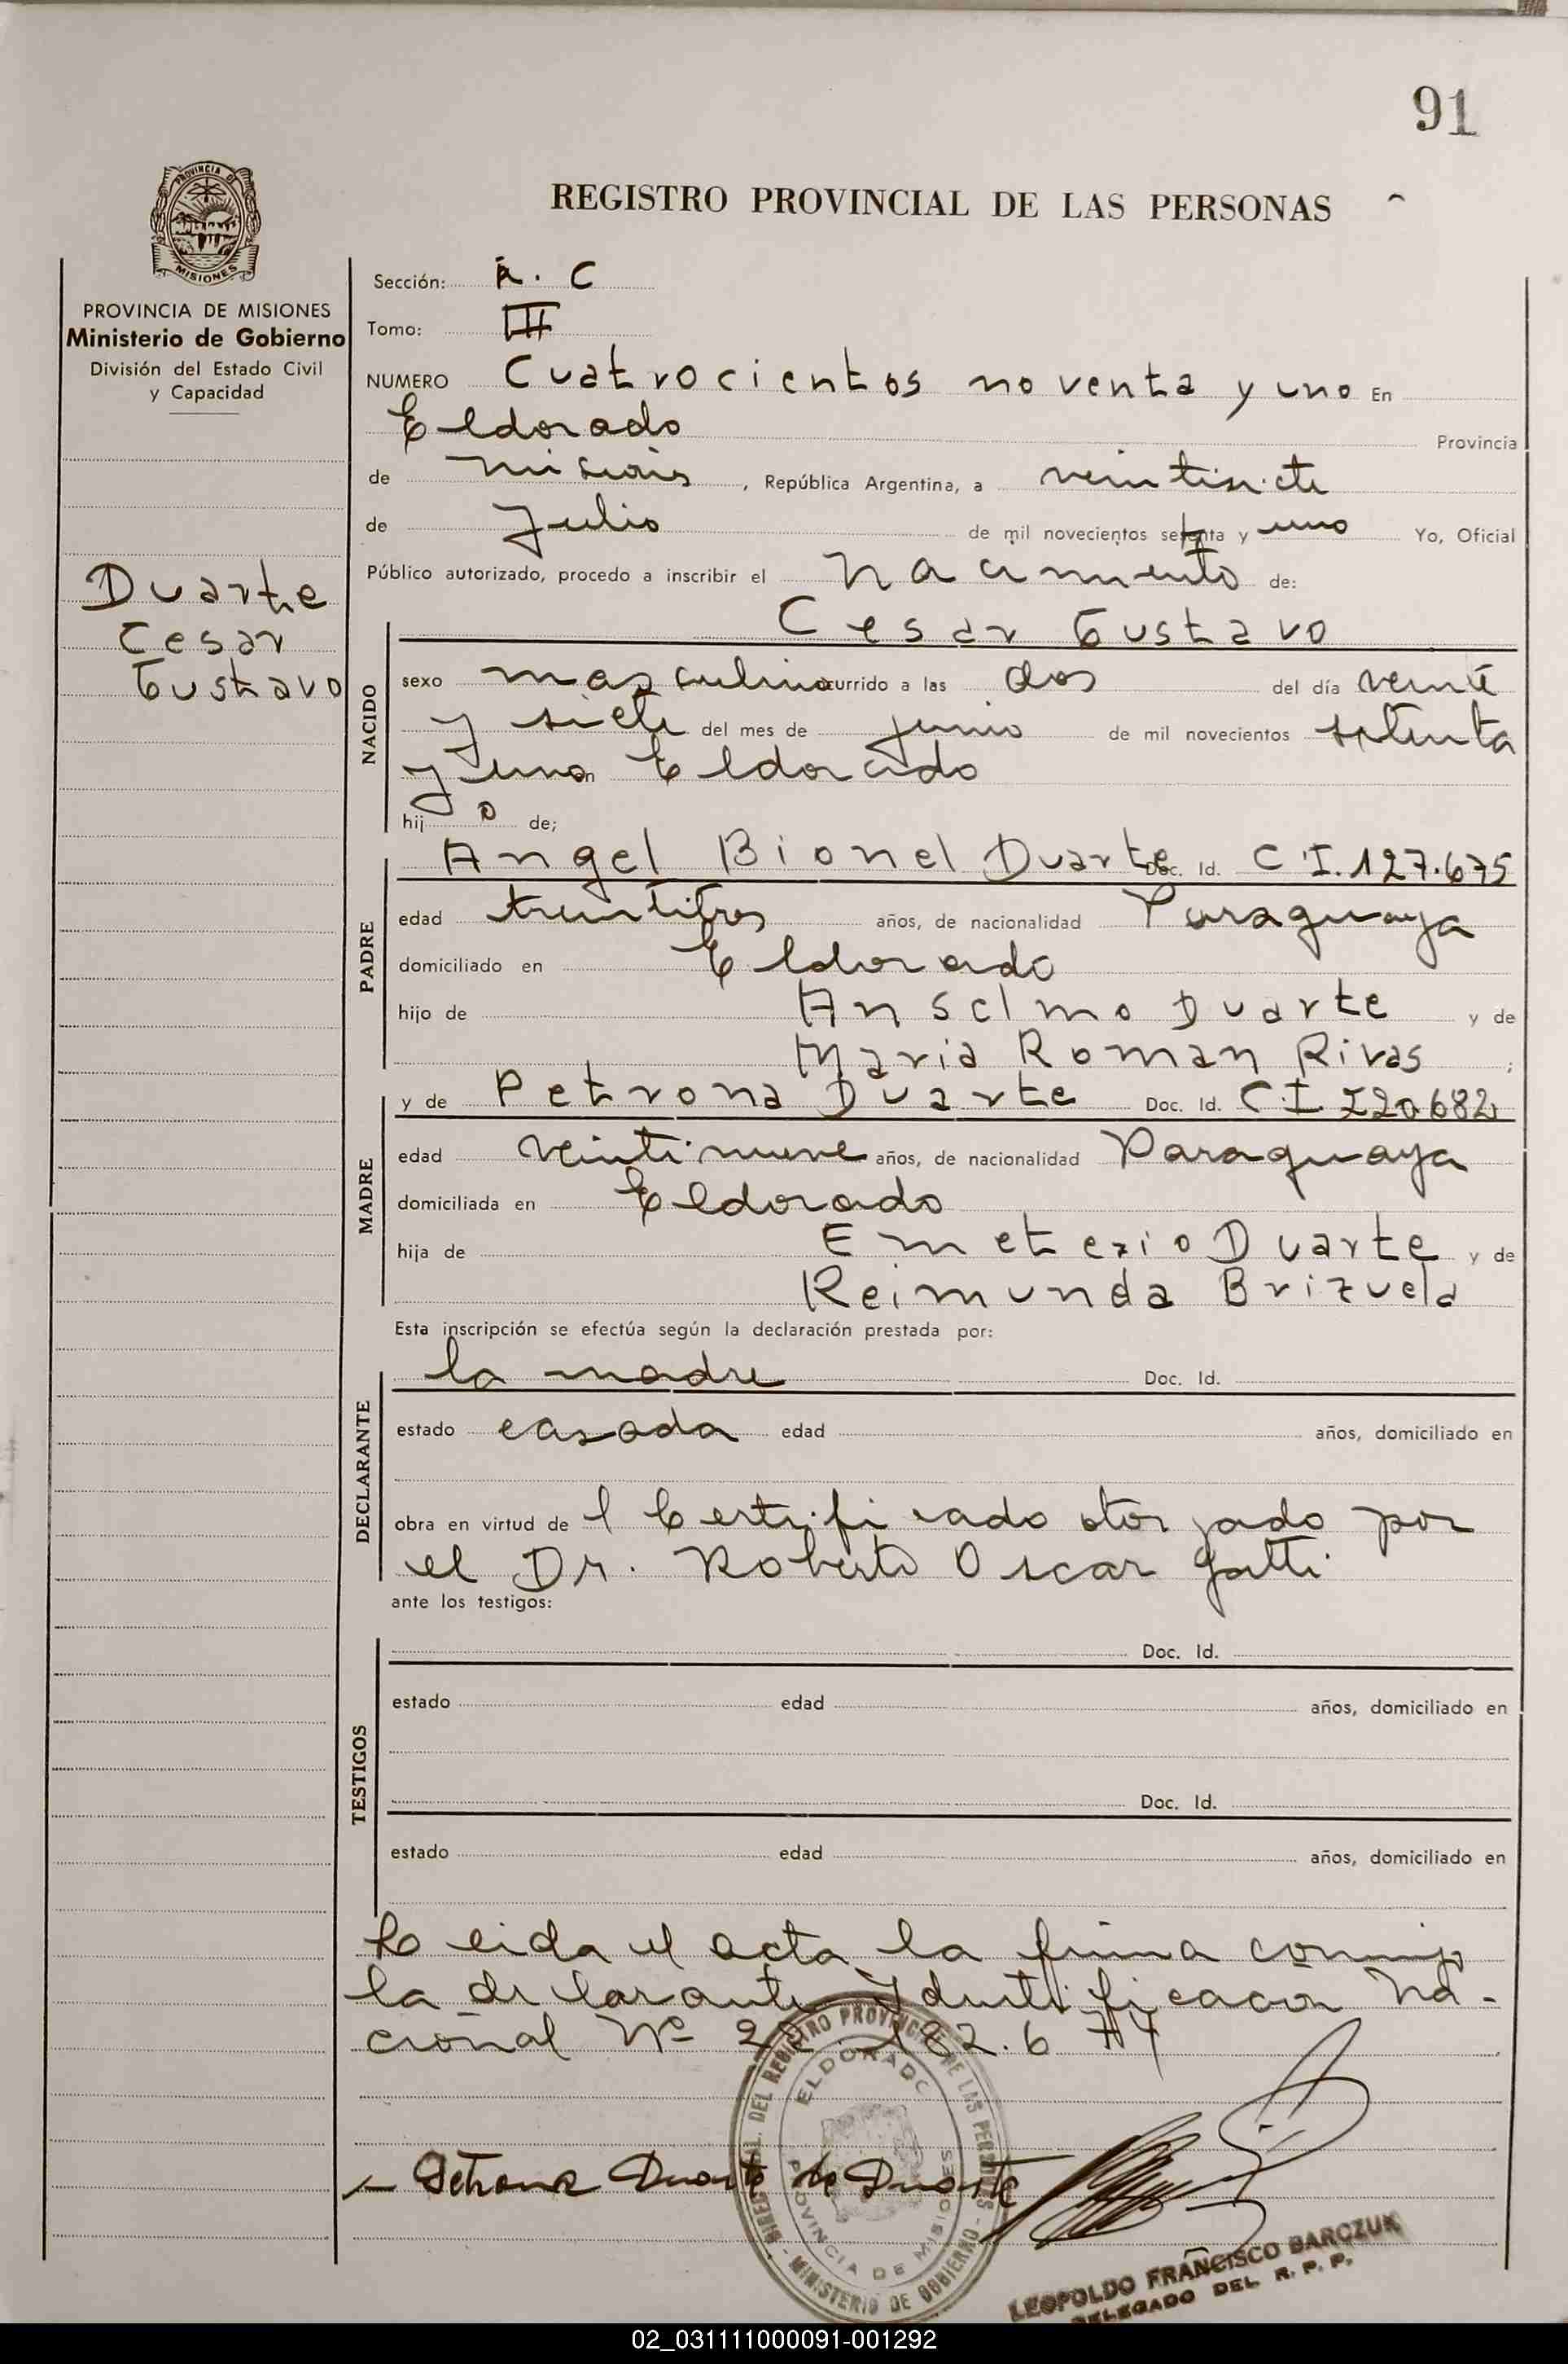 91
REGISTRO PROVINCIAL DE LAS PERSONAS
PROVINCIA DE MISIONES
Ministerio de Gobierno
División del Estado Civil
y Capacidad
Duarte
Cesar
Gustavo
Sección: R. C
Tomo: III
NUMERO Cuatrocientos noventa y uno En
Eldorado Provincia
de Misiones, República Argentina, a veintisiete
de Julio de mil novecientos setenta y uno Yo, Oficial
Público autorizado, procedo a inscribir el nacimiento de:
Cesar Gustavo
NACIDO
sexo masculino ocurrido a las dos del día veinte
y siete del mes de junio de mil novecientos setenta
y uno en Eldorado
hijo de;
PADRE
Angel Bionel Duarte Doc. Id. C.I. 127.675
edad treintitres años, de nacionalidad Paraguaya
domiciliado en Eldorado
hijo de Anselmo Duarte y de
Maria Roman Rivas ;
MADRE
y de Petrona Duarte Doc. Id. C.I 220.682
edad veintinueve años, de nacionalidad Paraguaya
domiciliada en Eldorado
hija de Emeterio Duarte y de
Reimunda Brizuela
Esta inscripción se efectúa según la declaración prestada por:
DECLARANTE
la madre Doc. Id.
estado casada edad años, domiciliado en
obra en virtud de l Certificado otorgado por
el Dr. Roberto Oscar Gatti
ante los testigos:
TESTIGOS
Doc. Id.
estado edad años, domiciliado en
Doc. Id.
estado edad años, domiciliado en
Leida el acta la firma conmigo
la declarante Identificación Na-
cional Nº 182.674
Petrona Duarte de Duarte
ELDORADO
PROVINCIA DE MISIONES
MINISTERIO DE GOBIERNO
LEOPOLDO FRANCISCO BARCZUK
DELEGADO DEL R. P. P.
02_031111000091-001292